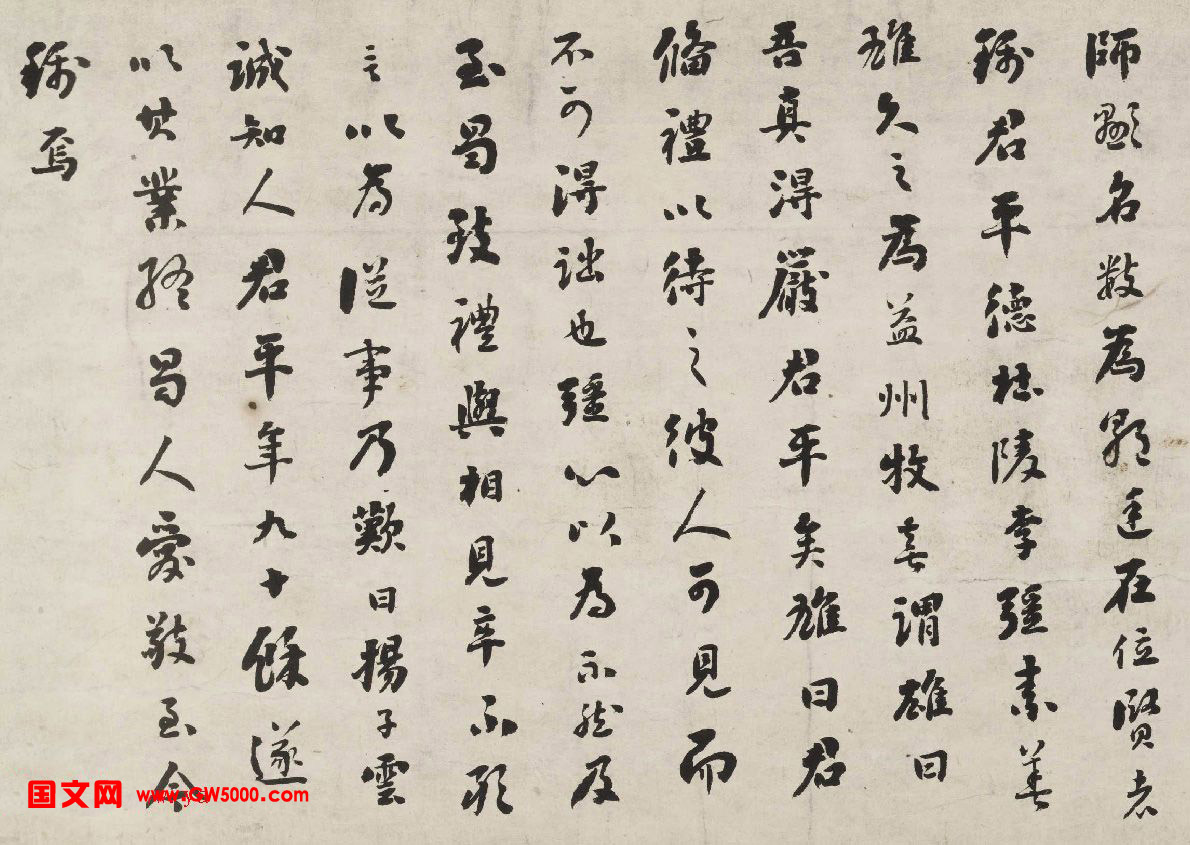 師顯名數為朝廷在位賢者
稱君平德杜陵李彊素善
雄久之為益州牧喜謂雄曰
吾真得嚴君平矣雄曰君
俻禮以待之彼人可見而
不可得詘也彊心以為不然及
至蜀致禮與相見卒不敢
言以為從事乃歎曰揚子雲
誠知人君平年九十餘遂
以其業終蜀人愛敬至今
稱焉
国文网 www.GW5000.com